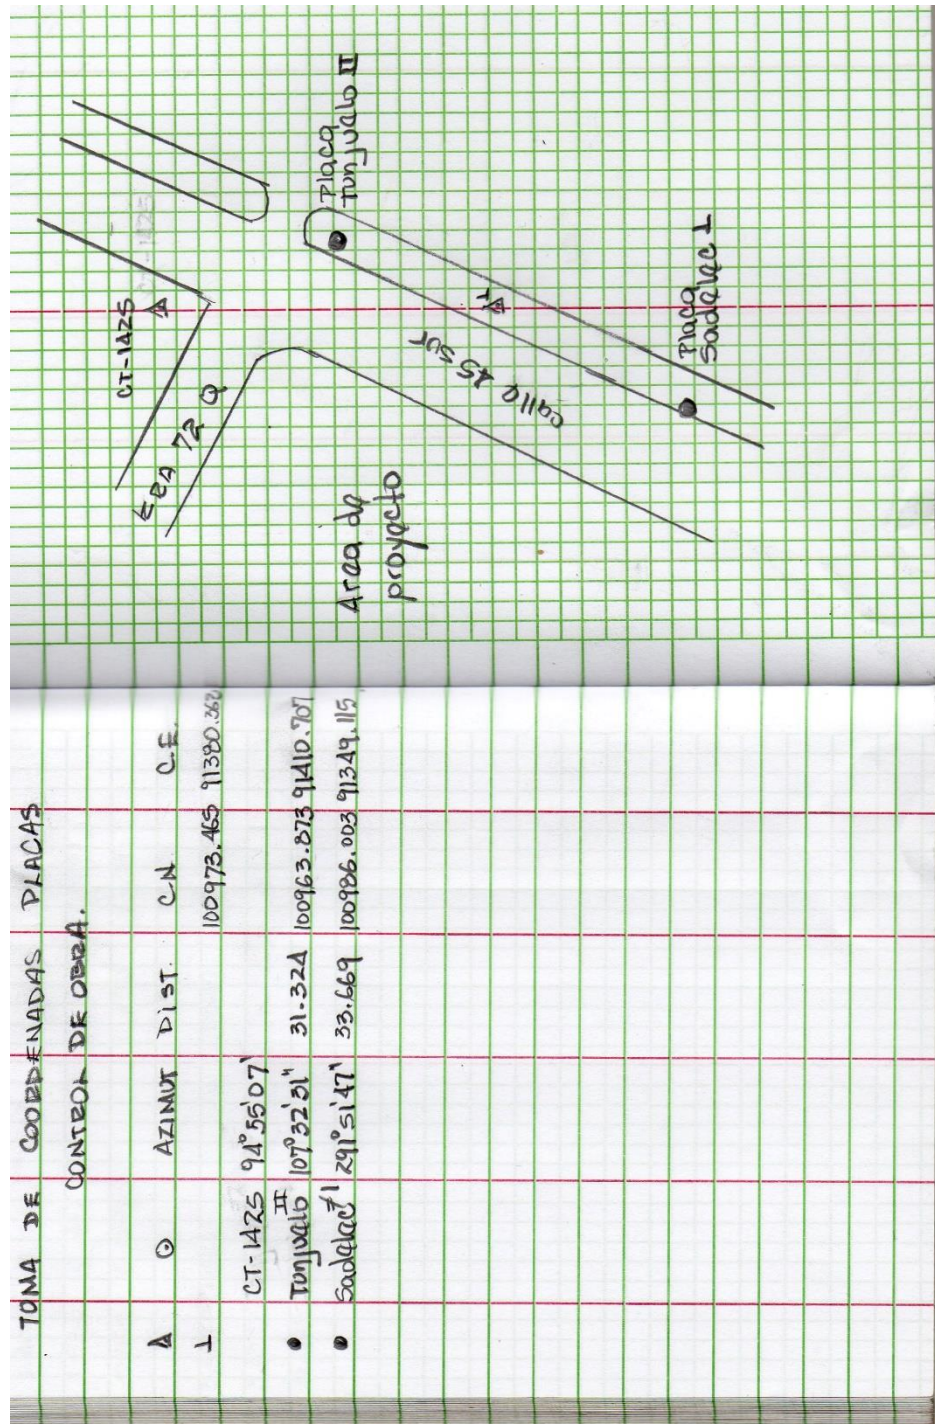 TOMA DE COORDENADAS PLACAS
CONTROL DE OBRA.
Δ ⊙ AZIMUT DIST. C.N C.E.
1 100973.465 91380.362
CT-1425 94°55'07"
● Tunjuelo II 107°32'31" 31.324 100963.873 91410.707
● Sadelec #1 291°51'47" 33.669 100986.003 91349.115
CT-1425
CRA 72 Q
Placa
Tunjuelo II
calle 45 sur
Δ1
Area de
proyecto
Placa
Sadelec 1